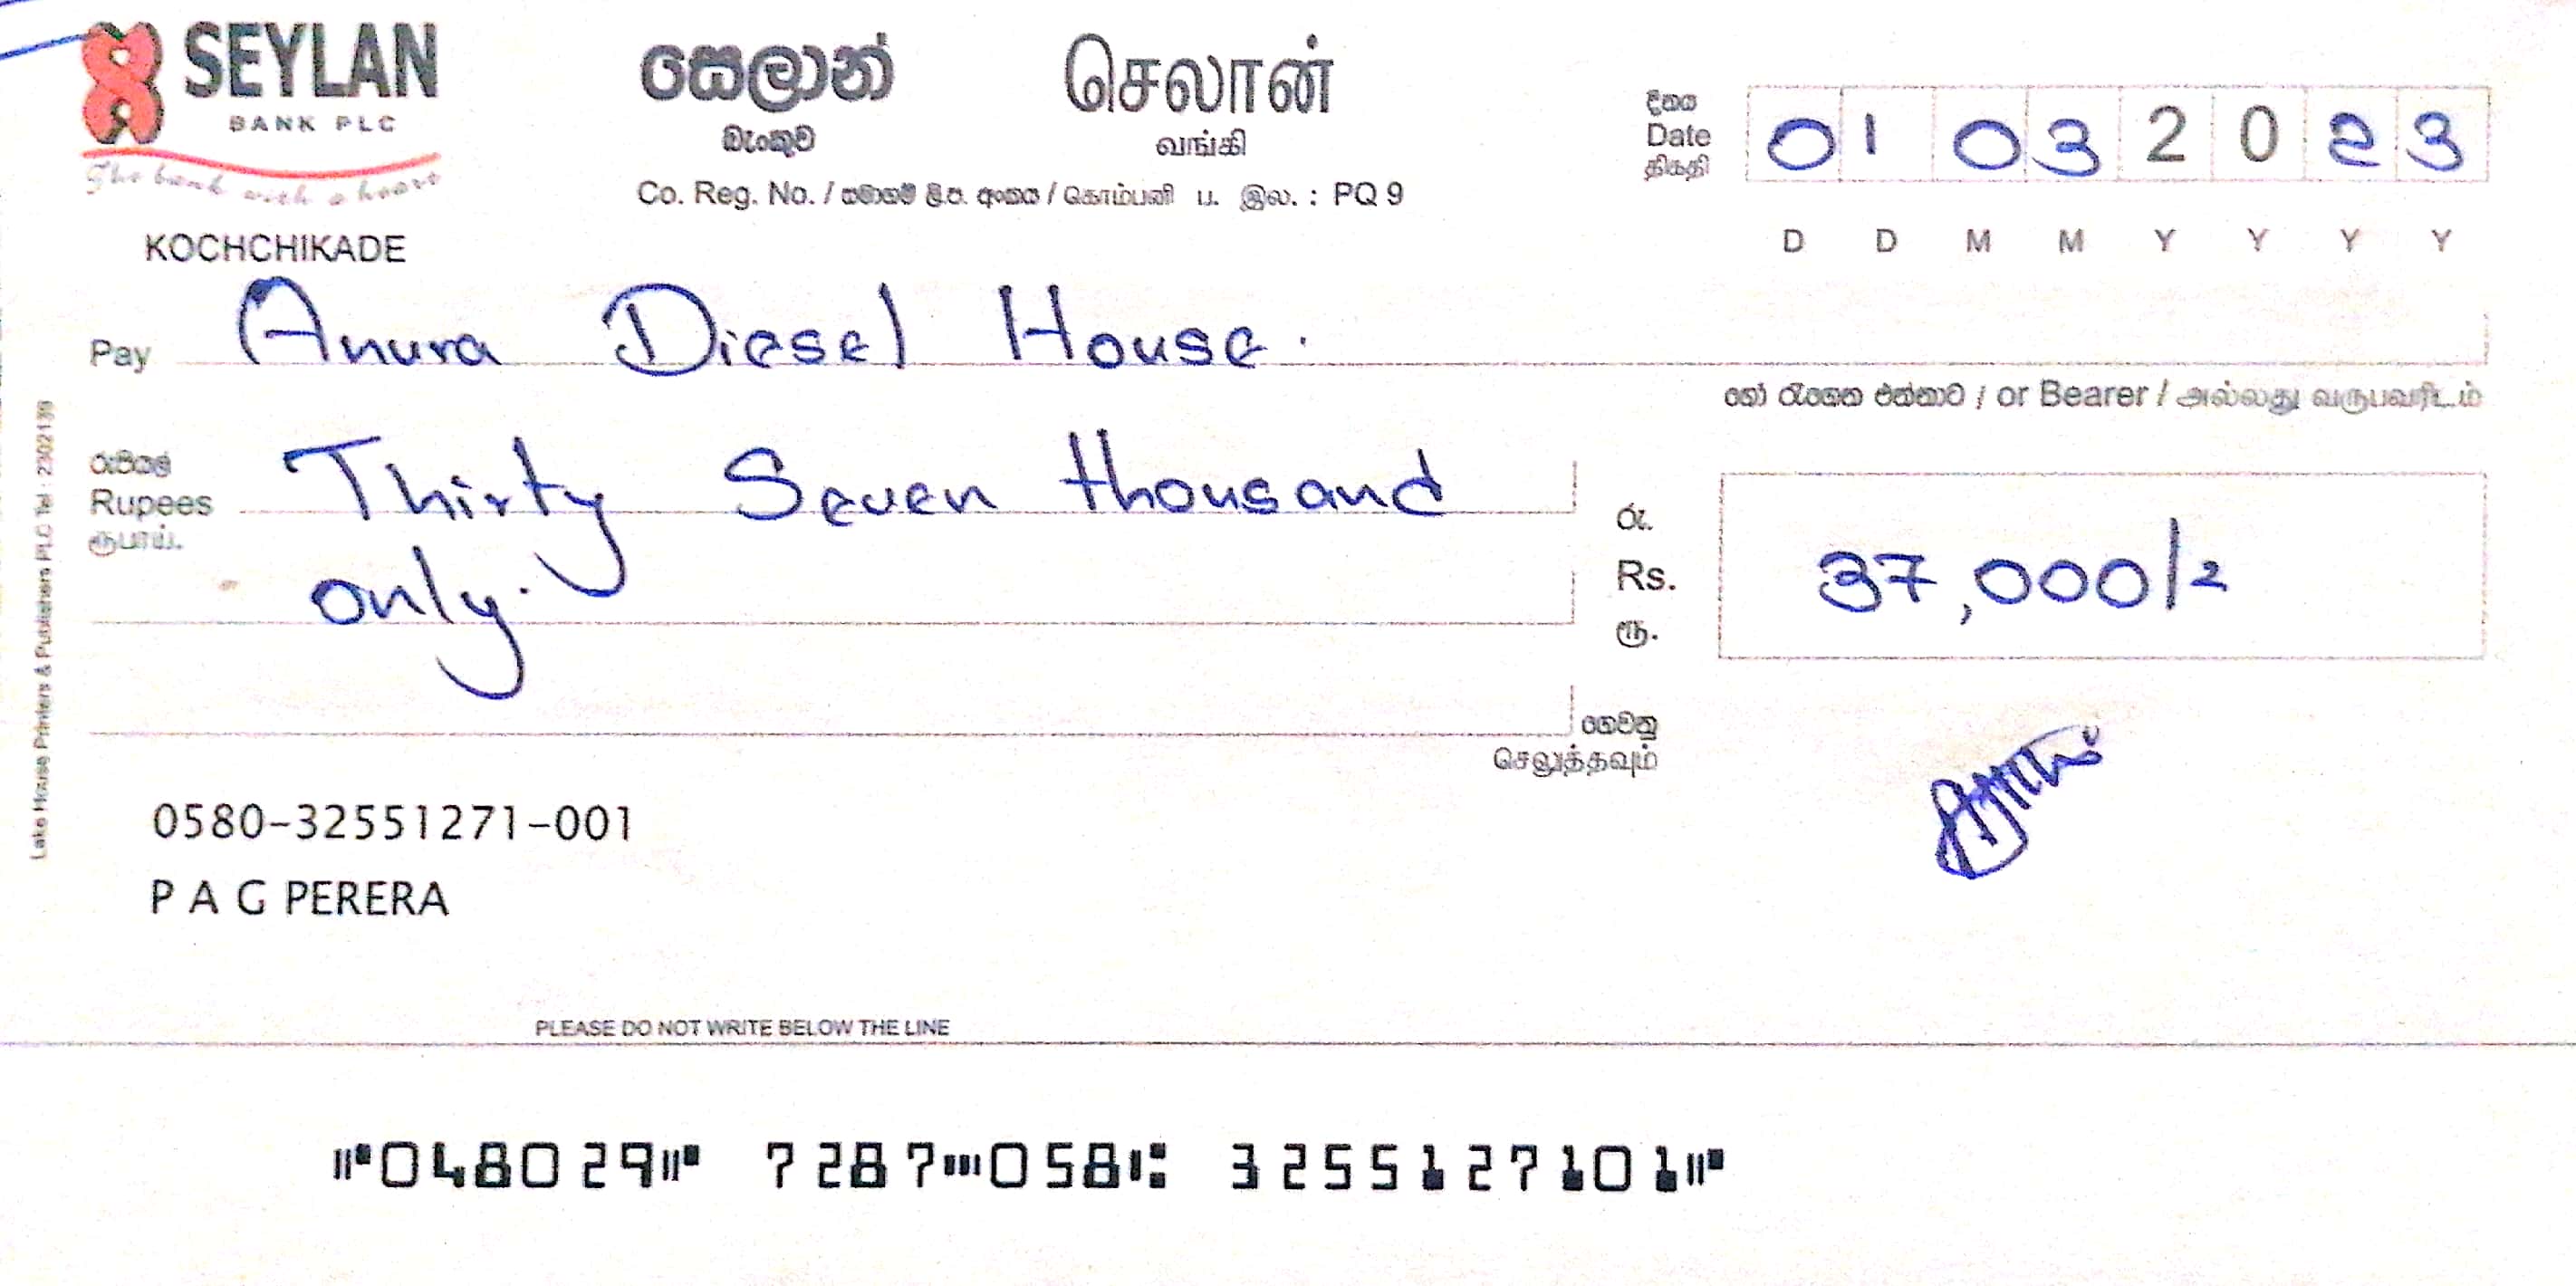 SEYLAN
BANK PLC
The bank with a heart
KOCHCHIKADE
සෙලාන් செலான்
බැංකුව வங்கி
Co. Reg. No. / සමාගම් ලි.ප. අංකය / கொம்பனி ப. இல. : PQ 9
දිනය
Date 01 03 2023
திகதி
D D M M Y Y Y Y
Pay Anura Diesel House.
හෝ රැගෙන එන්නාට / or Bearer / அல்லது வருபவரிடம்
රුපියල්
Rupees Thirty Seven thousand
ரூபாய்.
only.
රු.
Rs. 37,000/=
ரூ.
ගෙවනු
செலுத்தவும்
0580-32551271-001
P A G PERERA
Lake House Printers & Publishers PLC Tel : 2302139
PLEASE DO NOT WRITE BELOW THE LINE
⑈048029⑈ 7287⑉058⑆ 3255127101⑈